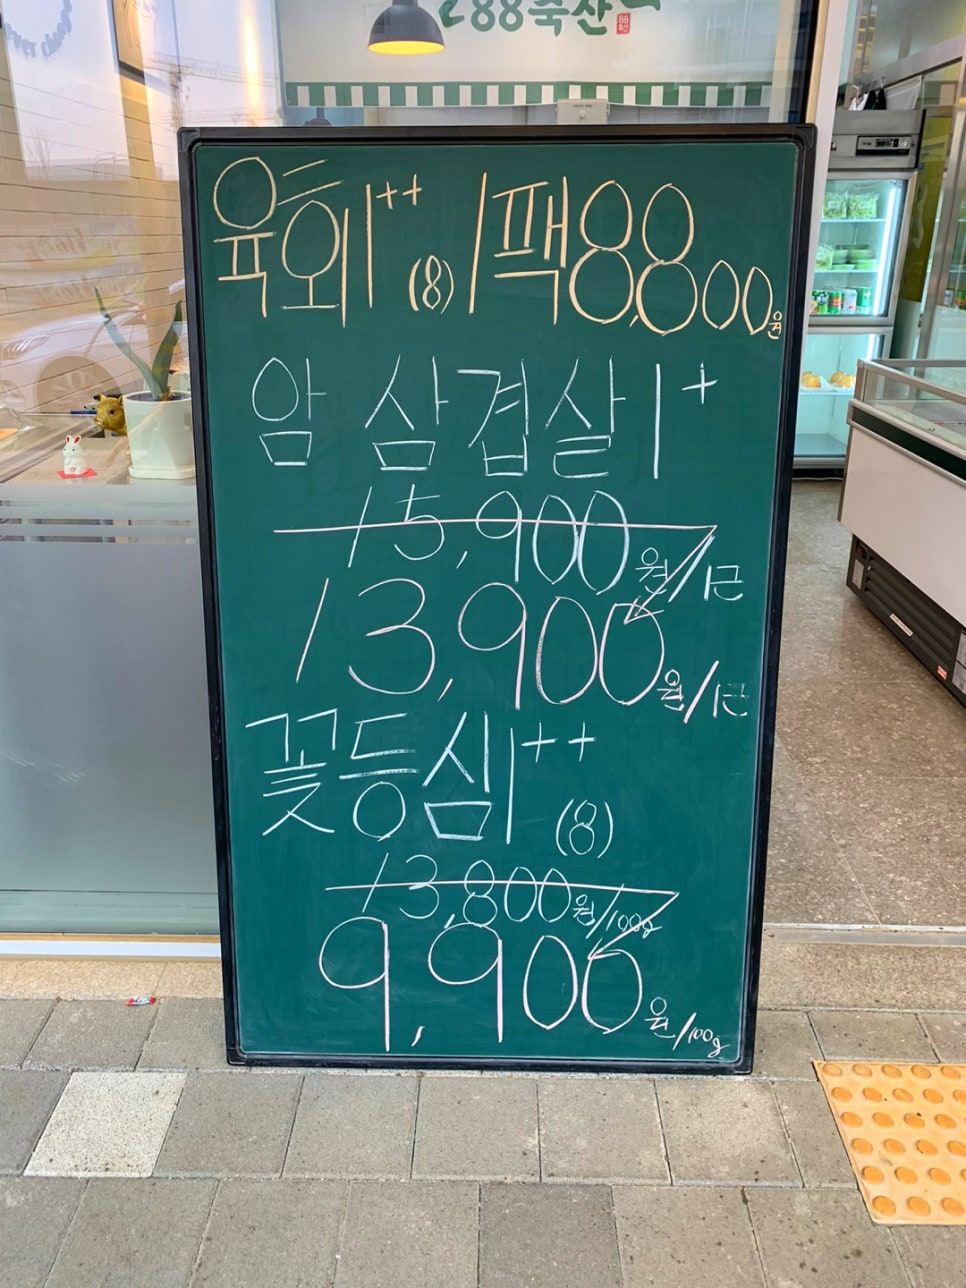 288축산
육회 1++ (8) / 팩 88,000원
암 삼겹살 1+
15,900원/1근
13,900원/1근
꽃등심 1++ (8)
13,800원/100g
9,900원/100g